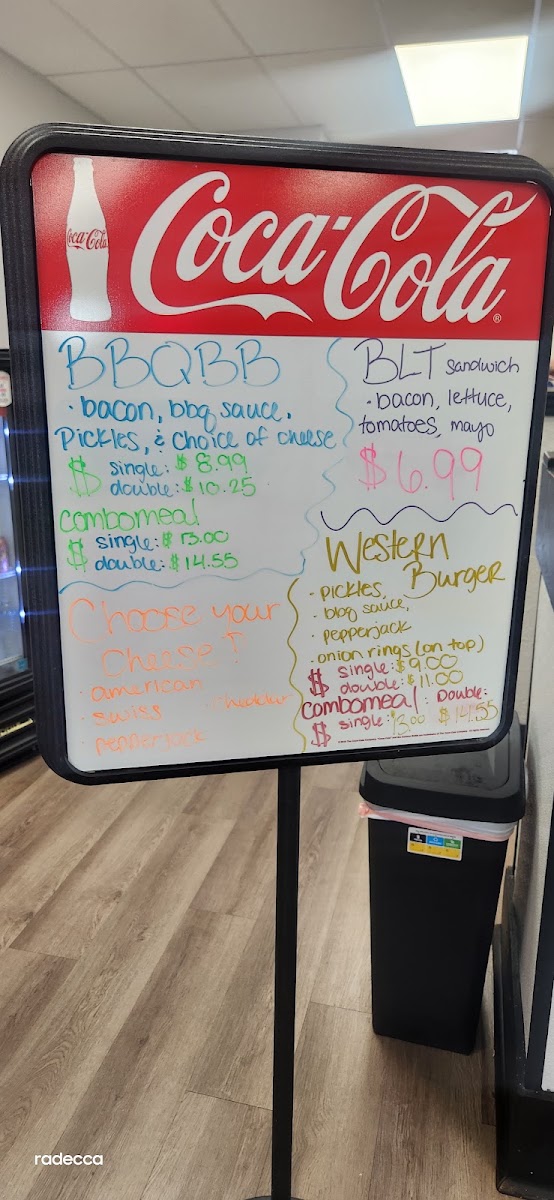 Coca-Cola
Coca-Cola®
BBQBB
· bacon, bbq sauce,
Pickles, & choice of cheese
$ single: $8.99
double: $10.25
combomeal
$ single: $13.00
double: $14.55
Choose your
Cheese!
· american
· swiss · cheddar
· pepperjack
BLT sandwich
· bacon, lettuce,
tomatoes, mayo
$6.99
Western
Burger
· pickles,
· bbq sauce,
· pepperjack
· onion rings (on top)
$ single: $9.00
double: $11.00
combomeal Double:
$ single: 13.00 $14.55
radecca